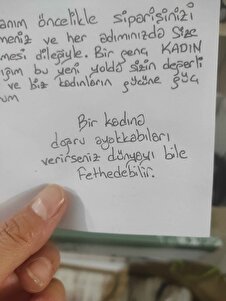 anım öncelikle siparişinizi
meniz ve her adımınızda size
mesi dileğiyle. Bir genç KADIN
ığım bu yeni yolda sizin değerli
ve biz kadınların gücüne güç
um
Bir kadına
doğru ayakkabıları
verirseniz dünyayı bile
Fethedebilir.